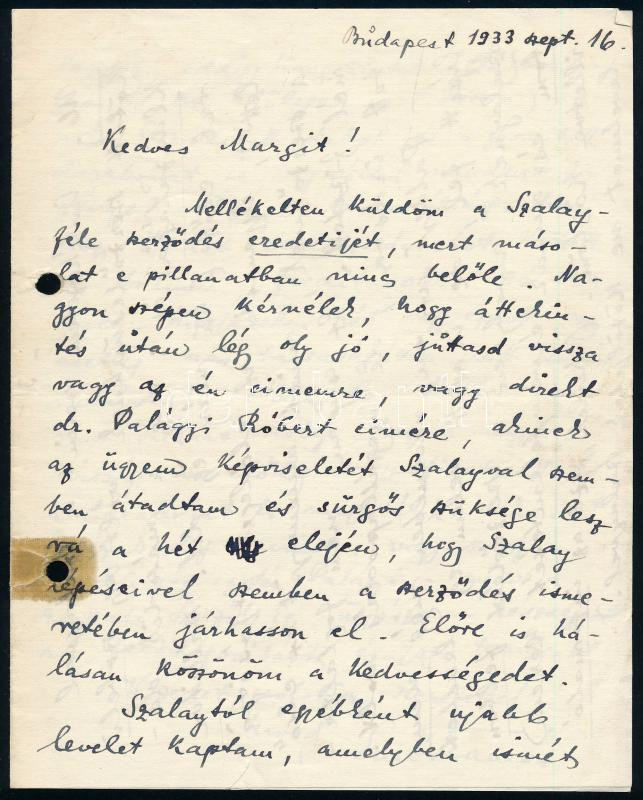 Budapest 1933 szept. 16.
Kedves Margit!
Mellékelten küldöm a Szalay-
féle szerződés eredetijét, mert máso-
lat e pillanatban nincs belőle. Na-
gyon szépen kérnélek, hogy áttekin-
tés után lég oly jó, juttasd vissza
vagy az én címemre, vagy direkt
dr. Palágyi Róbert címére, akinek
az ügyem képviseletét Szalayval szem-
ben átadtam és sürgős szüksége lesz
rá a hét elején, hogy Szalay
lépéseivel szemben a szerződés isme-
retében járhasson el. Előre is há-
lásan köszönöm a kedvességedet.
Szalaytól egyébként ujabb
levelet kaptam, amelyben ismét